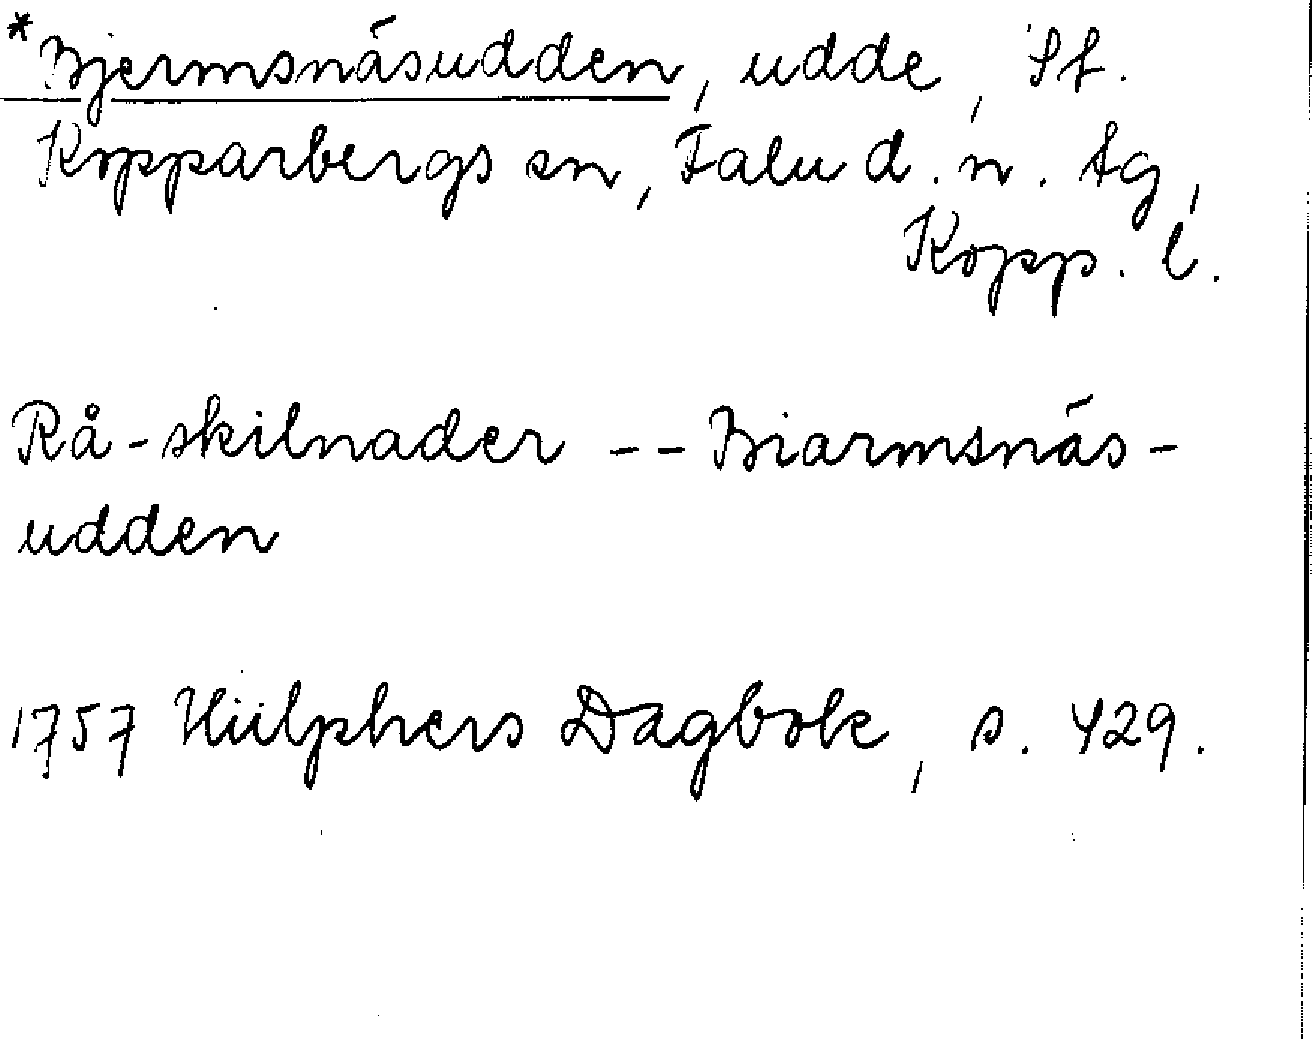 *Bjermsnäsudden, udde, St.
Kopparbergs sn, Falu d. n. tg,
Kopp. l.
Rå-skilnader -- Biarmsnäs-
udden
1757 Hülphers Dagbok, s. 429.